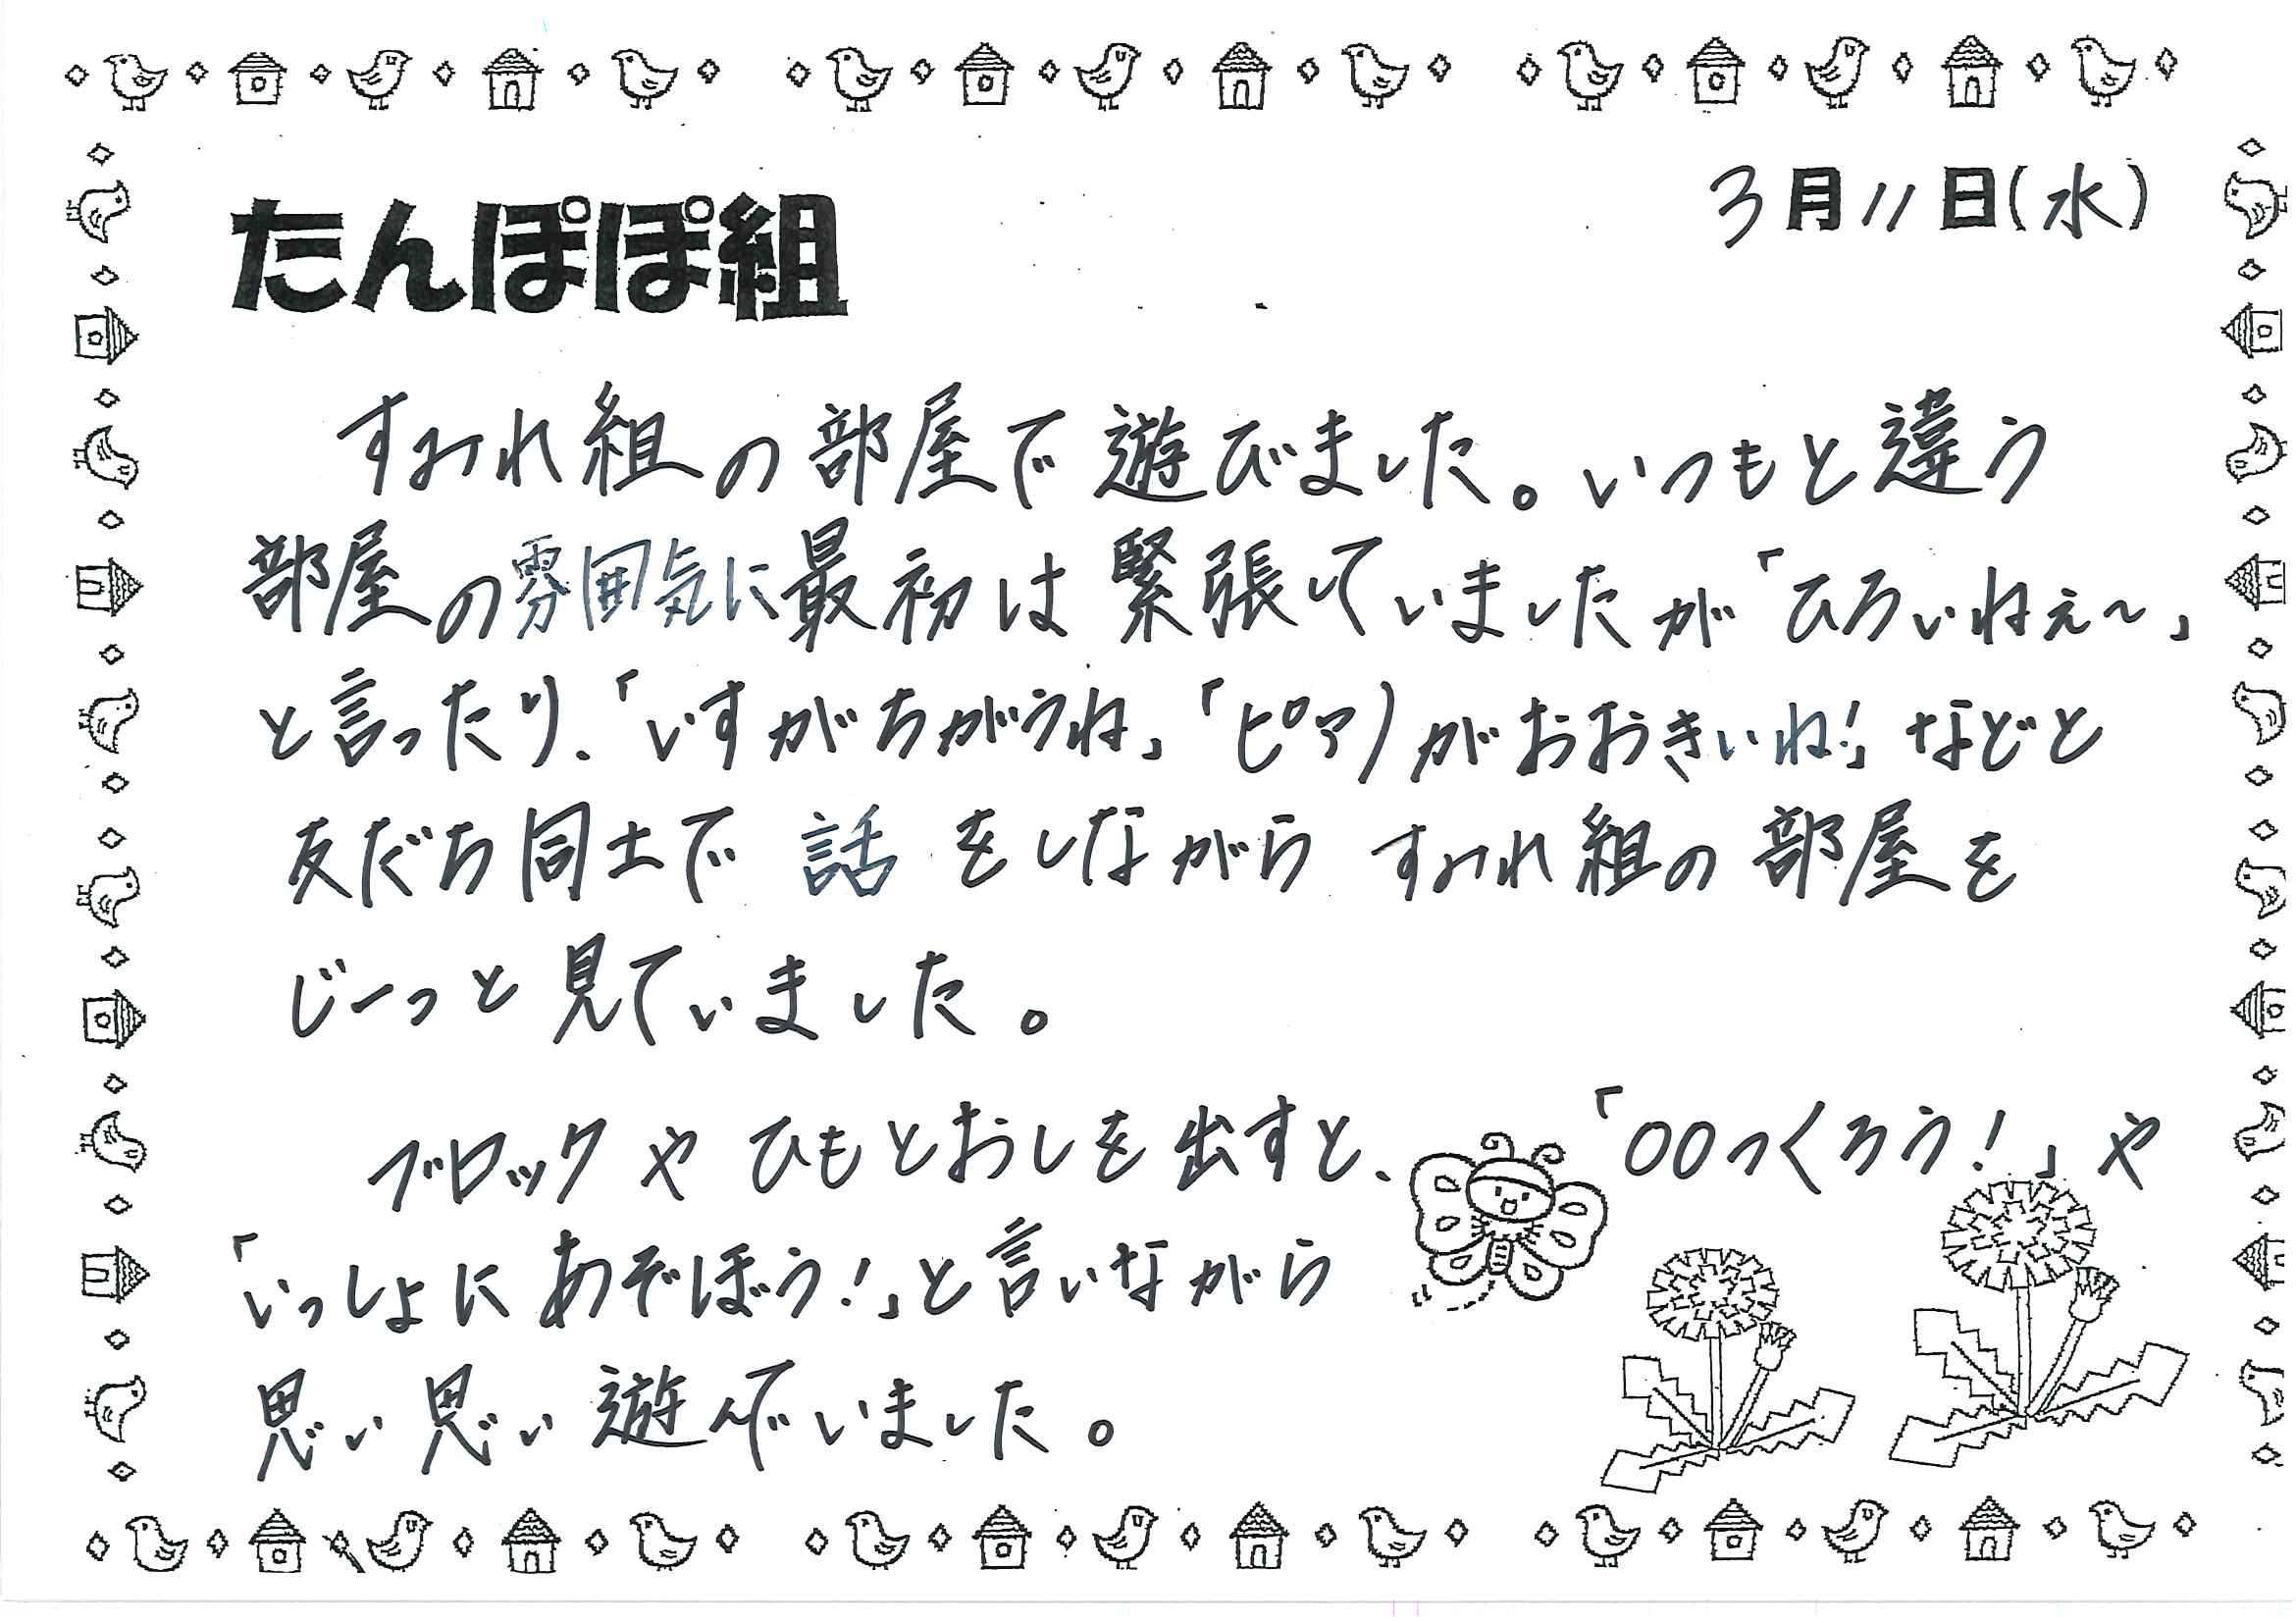 3月11日(水)
たんぽぽ組
すみれ組の部屋で遊びました。いつもと違う
部屋の雰囲気に最初は緊張していましたが「ひろいねぇ～」
と言ったり、「いすがちがうね」「ピアノがおおきいね!」などと
友だち同士で話をしながらすみれ組の部屋を
じーっと見ていました。
ブロックやひもとおしを出すと、「○○つくろう!」や
「いっしょにあそぼう!」と言いながら
思い思い遊んでいました。